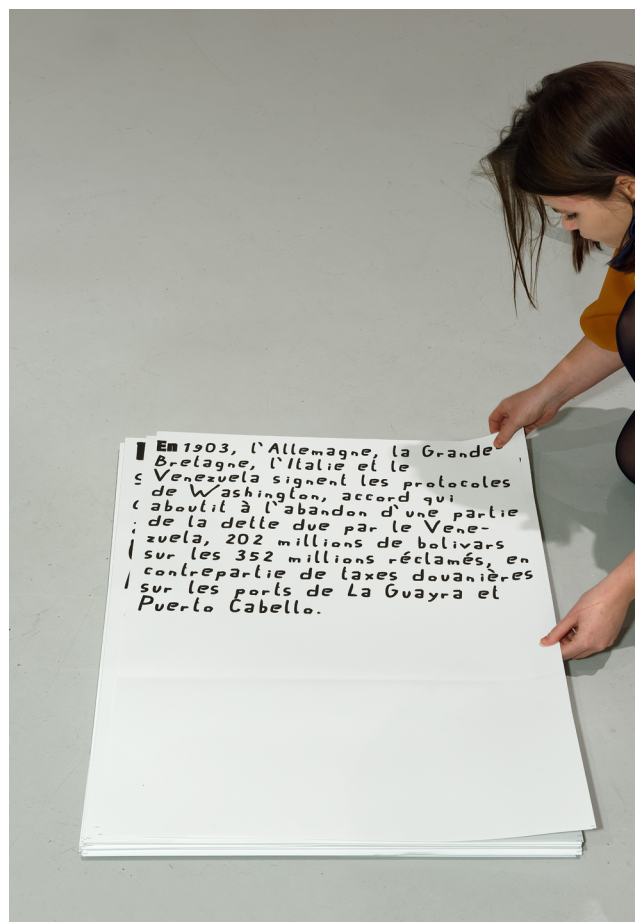 En 1903, l`Allemagne, la Grande-
Bretagne, l`Italie et le
Venezuela signent les protocoles
de Washington, accord qui
aboutit à l`abandon d`une partie
de la dette due par le Vene-
zuela, 202 millions de bolivars
sur les 352 millions réclamés, en
contrepartie de taxes douanières
sur les ports de La Guayra et
Puerto Cabello.